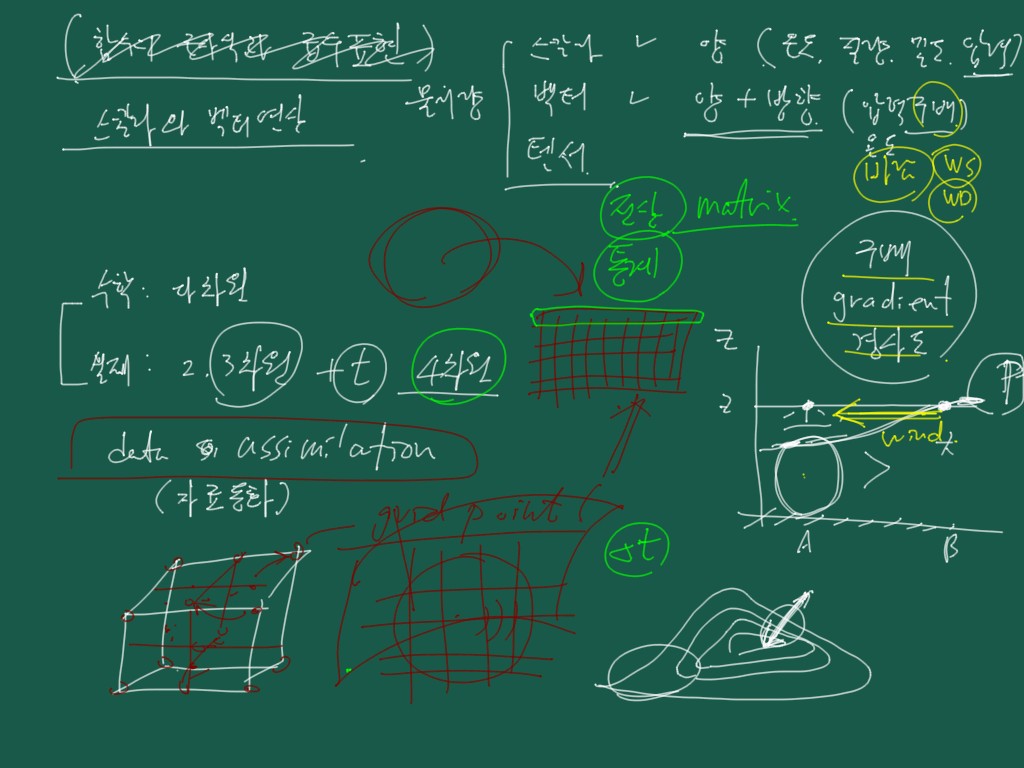 (함수의 급수표현)
스칼라와 벡터연산
물리량
스칼라 양 (온도, 질량, 밀도, 압력)
벡터 양 + 방향 (압력구배)
온도
텐서
바람 WS
WD
전산 matrix
통계
구배
gradient
경사도
수학: 다차원
실제: 2, 3차원 + t 4차원
data assimilation
(자료동화)
grid point
Δt
Z
z
P
wind
A B